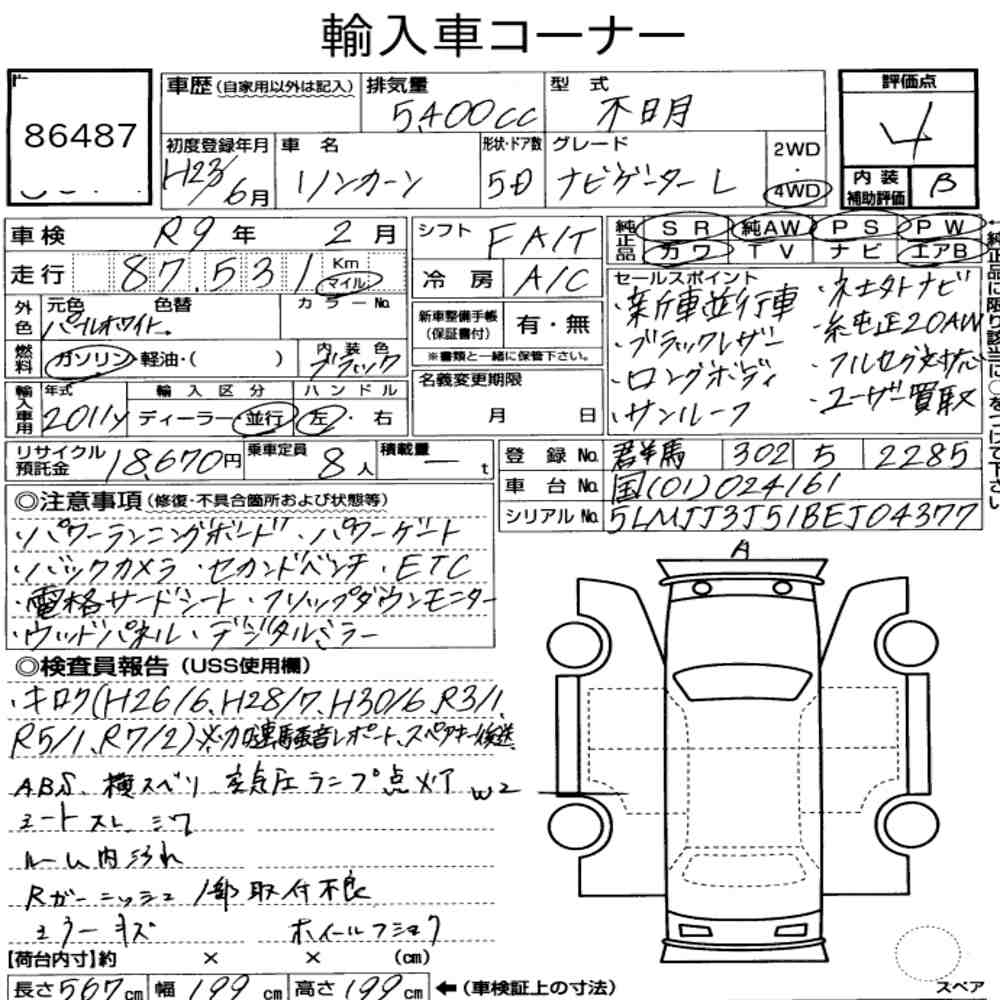 輸入車コーナー
86487
車歴 (自家用以外は記入)
排気量 5,400cc
型式 不明
評価点 4
初度登録年月 H23/6月
車名 リンカーン
形状・ドア数 5D
グレード ナビゲーターL
2WD
4WD
内装補助評価 B
車検 R9年 2月
シフト FA/T
純正品 SR 純AW PS PW
カワ TV ナビ エアB
走行 87,531 Km マイル
冷房 A/C
セールスポイント
・新車並行車
・ブラックレザー
・ロングボディ
・サンルーフ
・社外ナビ
・純正20AW
・フルセグ対応
・ユーザー買取
純正品に限り該当に○をつけて下さい
外色 元色 色替 カラーNo.
パールホワイト
新車整備手帳 (保証書付) 有・無
※書類と一緒に保管下さい。
燃料 ガソリン・軽油・( )
内装色 ブラック
名義変更期限
月 日
輸入車用 年式 2011y
輸入区分 ディーラー・並行
ハンドル 左・右
リサイクル預託金 18,670円
乗車定員 8人
積載量 ー t
登録No. 群馬 302 5 2285
車台No. 国(01)024161
シリアルNo. 5LMJJ3J51BEJ04377
◎注意事項 (修復・不具合箇所および状態等)
・パワーランニングボード・パワーゲート
・バックカメラ・セカンドベンチ・ETC
・電格サードシート・フリップダウンモニター
・ウッドパネル・デジタルミラー
◎検査員報告 (USS使用欄)
・キロク(H26/6、H28/7、H30/6、R3/1、
R5/1、R7/2)※加速騒音レポート、スペアキー後送
ABS、横スベリ、空気圧ランプ点灯
W2
シートスレ、シワ
ルーム内汚れ
Rガーニッシュ1部取付不良
ミラーキズ ホイールフショク
A
【荷台内寸】約 × × (cm)
長さ567cm 幅199cm 高さ199cm ←(車検証上の寸法)
スペア